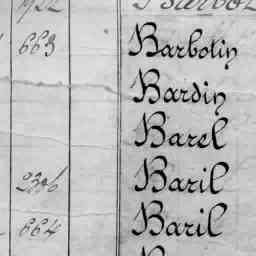 663 Barbotin
Bardin
Barel
2306 Baril
664 Baril